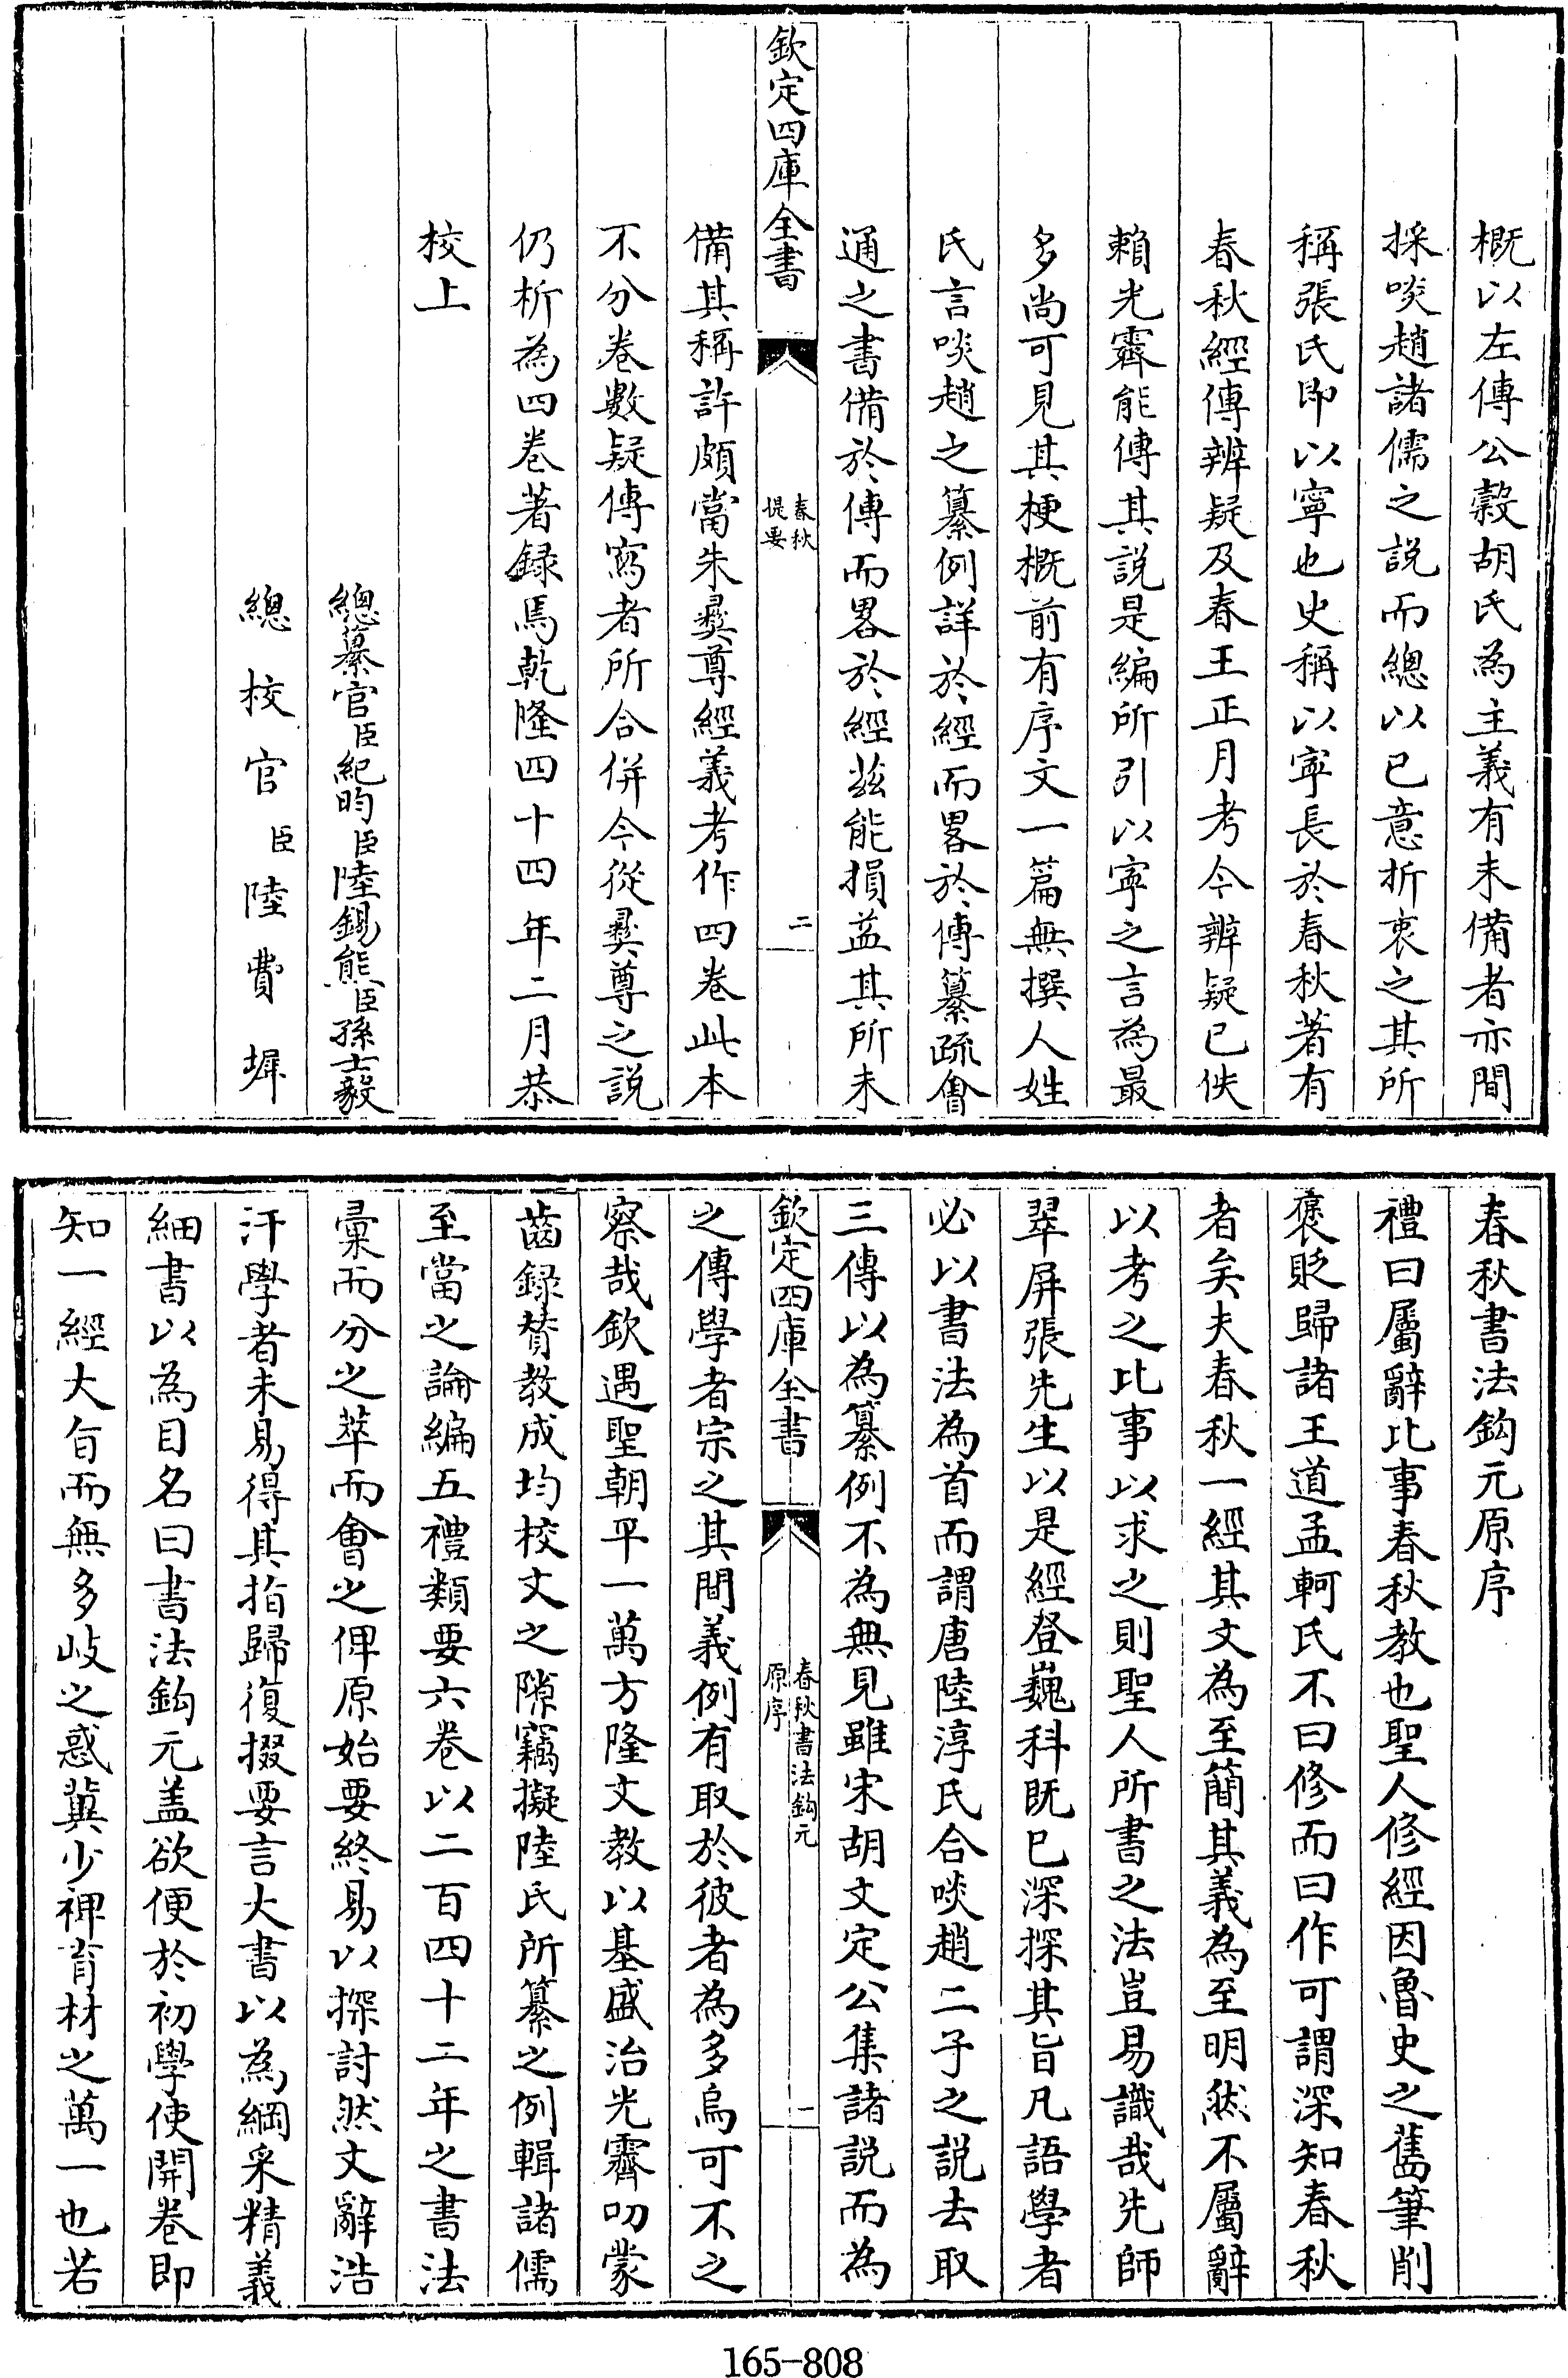 概以左傳公穀胡氏為主義有未備者亦間
採啖趙諸儒之説而總以已意折衷之其所
稱張氏即以寧也史稱以寧長於春秋著有
春秋經傳辨疑及春王正月考今辨疑已佚
賴光霽能傳其説是編所引以寧之言為最
多尚可見其梗概前有序文一篇無撰人姓
氏言啖趙之纂例詳於經而畧於傳纂疏會
通之書備於傳而畧於經兹能損益其所未
欽定四庫全書
春秋
提要
二
備其稱許頗當朱彛尊經義考作四卷此本
不分卷數疑傳寫者所合併今從彛尊之説
仍析為四卷著録焉乾隆四十四年二月恭
校上
總纂官臣紀昀臣陸錫熊臣孫士毅
總校官臣陸費墀
春秋書法鈎元原序
禮曰屬辭比事春秋教也聖人修經因魯史之舊筆削
褒貶歸諸王道孟軻氏不曰修而曰作可謂深知春秋
者矣夫春秋一經其文為至簡其義為至明然不屬辭
以考之比事以求之則聖人所書之法豈易識哉先師
翠屏張先生以是經登巍科既已深探其旨凡語學者
必以書法為首而謂唐陸淳氏合啖趙二子之説去取
三傳以為纂例不為無見雖宋胡文定公集諸説而為
欽定四庫全書
春秋書法鈎元
原序
一
之傳學者宗之其間義例有取於彼者為多烏可不之
察哉欽遇聖朝平一萬方隆文教以基盛治光霽叨蒙
齒録賛教成均校文之隙竊擬陸氏所纂之例輯諸儒
至當之論編五禮類要六卷以二百四十二年之書法
彙而分之萃而會之俾原始要終易以探討然文辭浩
汗學者未易得其指歸復掇要言大書以為綱采精義
細書以為目名曰書法鈎元盖欲便於初學使開卷即
知一經大旨而無多岐之惑冀少裨育材之萬一也若
165-808